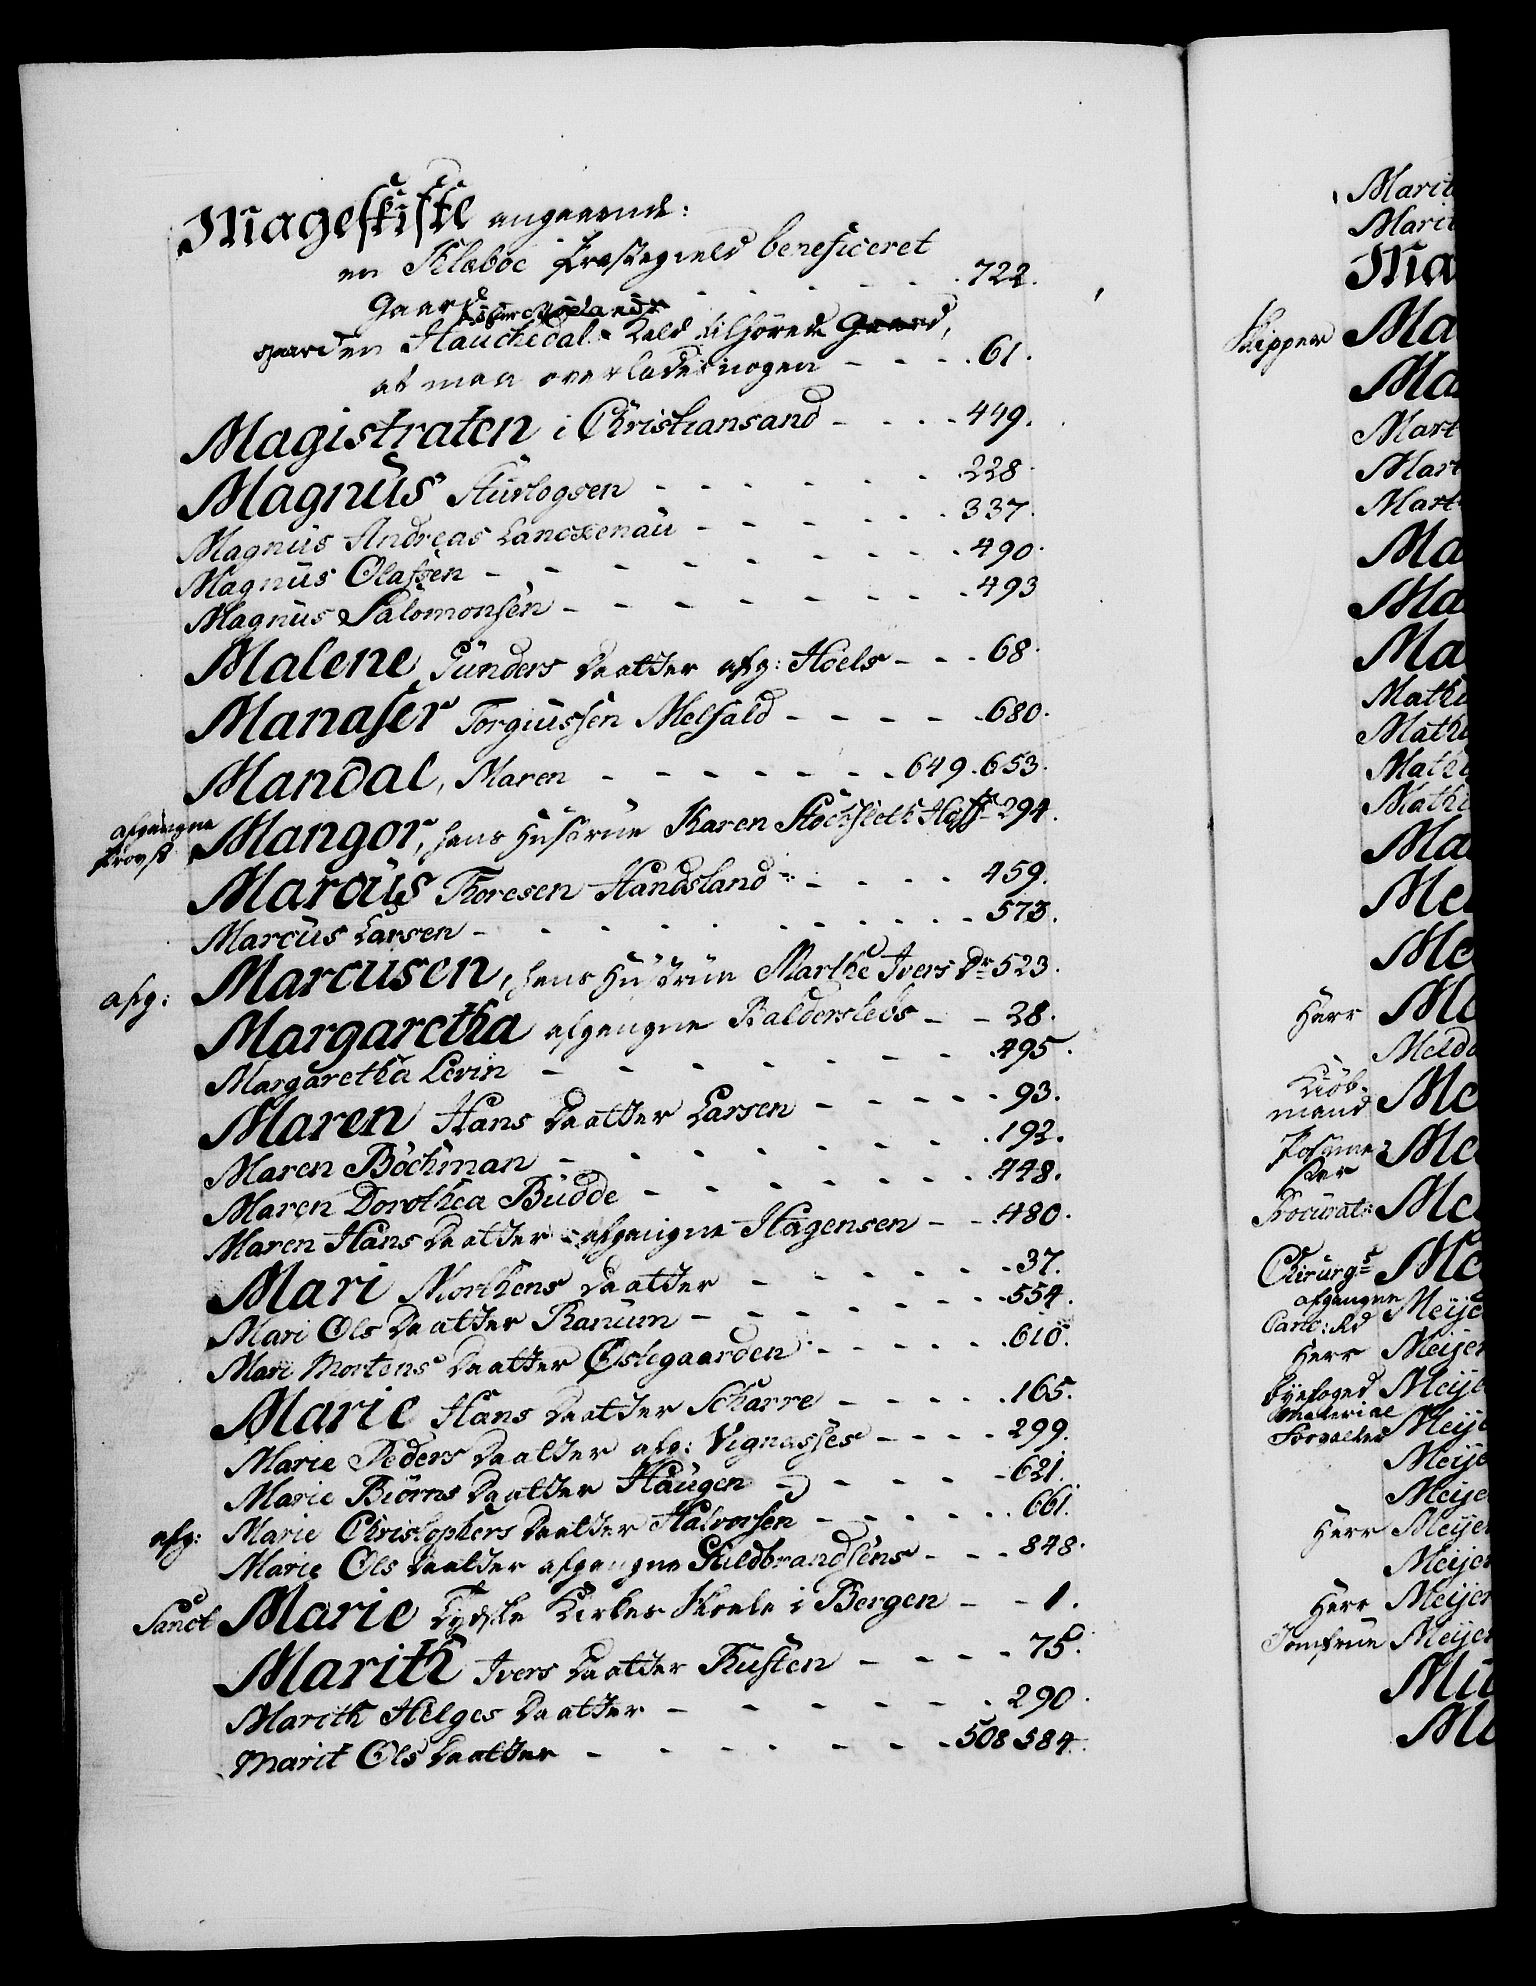 Mageskifte angaaende:
en Klæboe Præstegield beneficeret
Gaard - - - - - - 722.
gaarden Hauchedal Kald tilhørende Gaard,
at maa overlades nogen - - - 61.
Magistraten i Christiansand - - - - 449.
Magnüs Stürlogsen - - - - - - 228.
Magnüs Andreas Lanckenaü - - - - - 337.
Magnüs Olafsen - - - - - - - - 490.
Magnüs Salomonsen - - - - - - - - 493
Malene Gunders Daatter afg: Hoels - - - 68.
Manaser Torgiussen Melsald - - - - - 680.
Mandal, Maren - - - - - - - 649. 653.
afgangne Provst Mangor, hans Hustrue Karen Stöckfleth 294.
Marcüs Thoresen Handsland - - - - 459.
Marcüs Larsen - - - - - - - - - 573.
afg: Marcusen, hans Hüstrüe Marthe Ivers Dr 523.
Margaretha afgangne Balderslebs - - 28.
Margaretha Levin - - - - - - - 495.
Maren Hans Daatter Larsen - - - - - 93.
Maren Böckman - - - - - - - 192.
Maren Dorothea Büdde - - - - - - - 448.
Maren Hans Daatter afgangne Hagensen - - 480.
Mari Morthens Daatter - - - - - - 37.
Mari Ols Daatter Ranüm - - - - - - - 554.
Mari Mortens Daatter Østegaarden - - - - - 610.
Marie Hans Daatter Scharre - - - - - 165.
Marie Peders Daatter afg: Vignasses - - - - 299.
Marie Biörns Daatter Haügen - - - - - 621.
afg: Marie Christophers Daatter Halvorsen - - - - - - 661.
Marie Ols Daatter afgangne Guldbrandsens - - - 848.
Sanct Marie Tydske Kirkes Skoele i Bergen - - 1.
Marith Ivers Daatter Rusten - - - - 75.
Marith Helges Daatter - - - - - - 290.
Marit Ols Daatter - - - - - - - 508 584.
Marit
Marit
Ma
Skipper Ma
Ma
Mart
Mart
Mart
Ma
Ma
Ma
Math
Math
Math
Math
Ma
Me
Me
Herr Me
Meld
Kiöb-
mand Me
Me
Me
Chirurgs Me
afgangne
Meije
Herr Meijer
Byefoged Meije
Material
Forvalter Meije
Meije
Meije
Herr Meijer
Meijer
Herr Meijer
Jomfrue Meijer